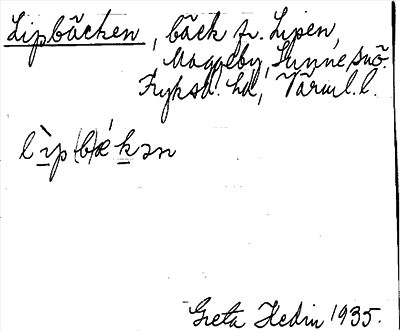 Lipbäcken, bäck fr. Lipen,
Maggeby, Sunne sn
Fryksd. hd, Värml. l.
lìp(b)ækən
Greta Hedin 1935.